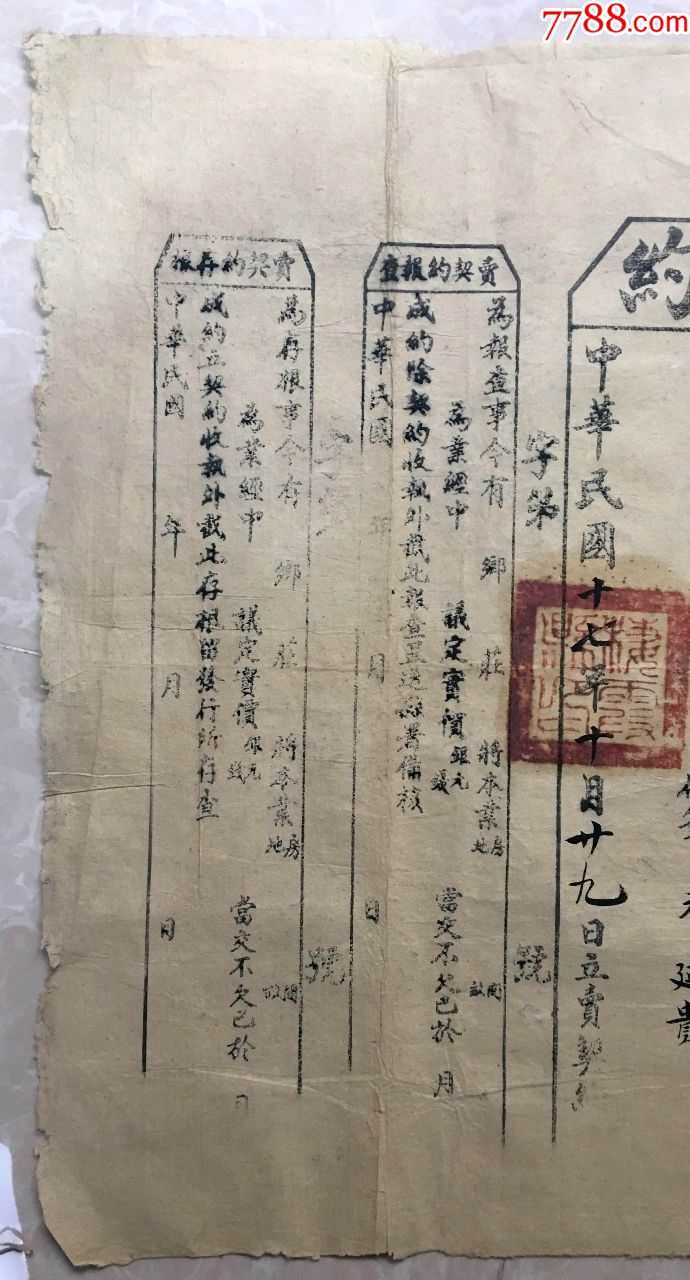 7788.com
約
延貴
中華民國十七年十月廿九日立賣契約
字第 號
賣契約報查
為報查事今有 鄉 莊 將本業房地 間畝
為業經中 議定實價銀元錢 當交不欠已於 月
成約除契約收執外截此報查呈送縣署備核
中華民國 年 月 日
字 號
賣契約存根
為存根事今有 鄉 莊 將本業房地 間畝
為業經中 議定實價銀元錢 當交不欠已於 月
成約立契約收執外截此存根留發行所存查
中華民國 年 月 日